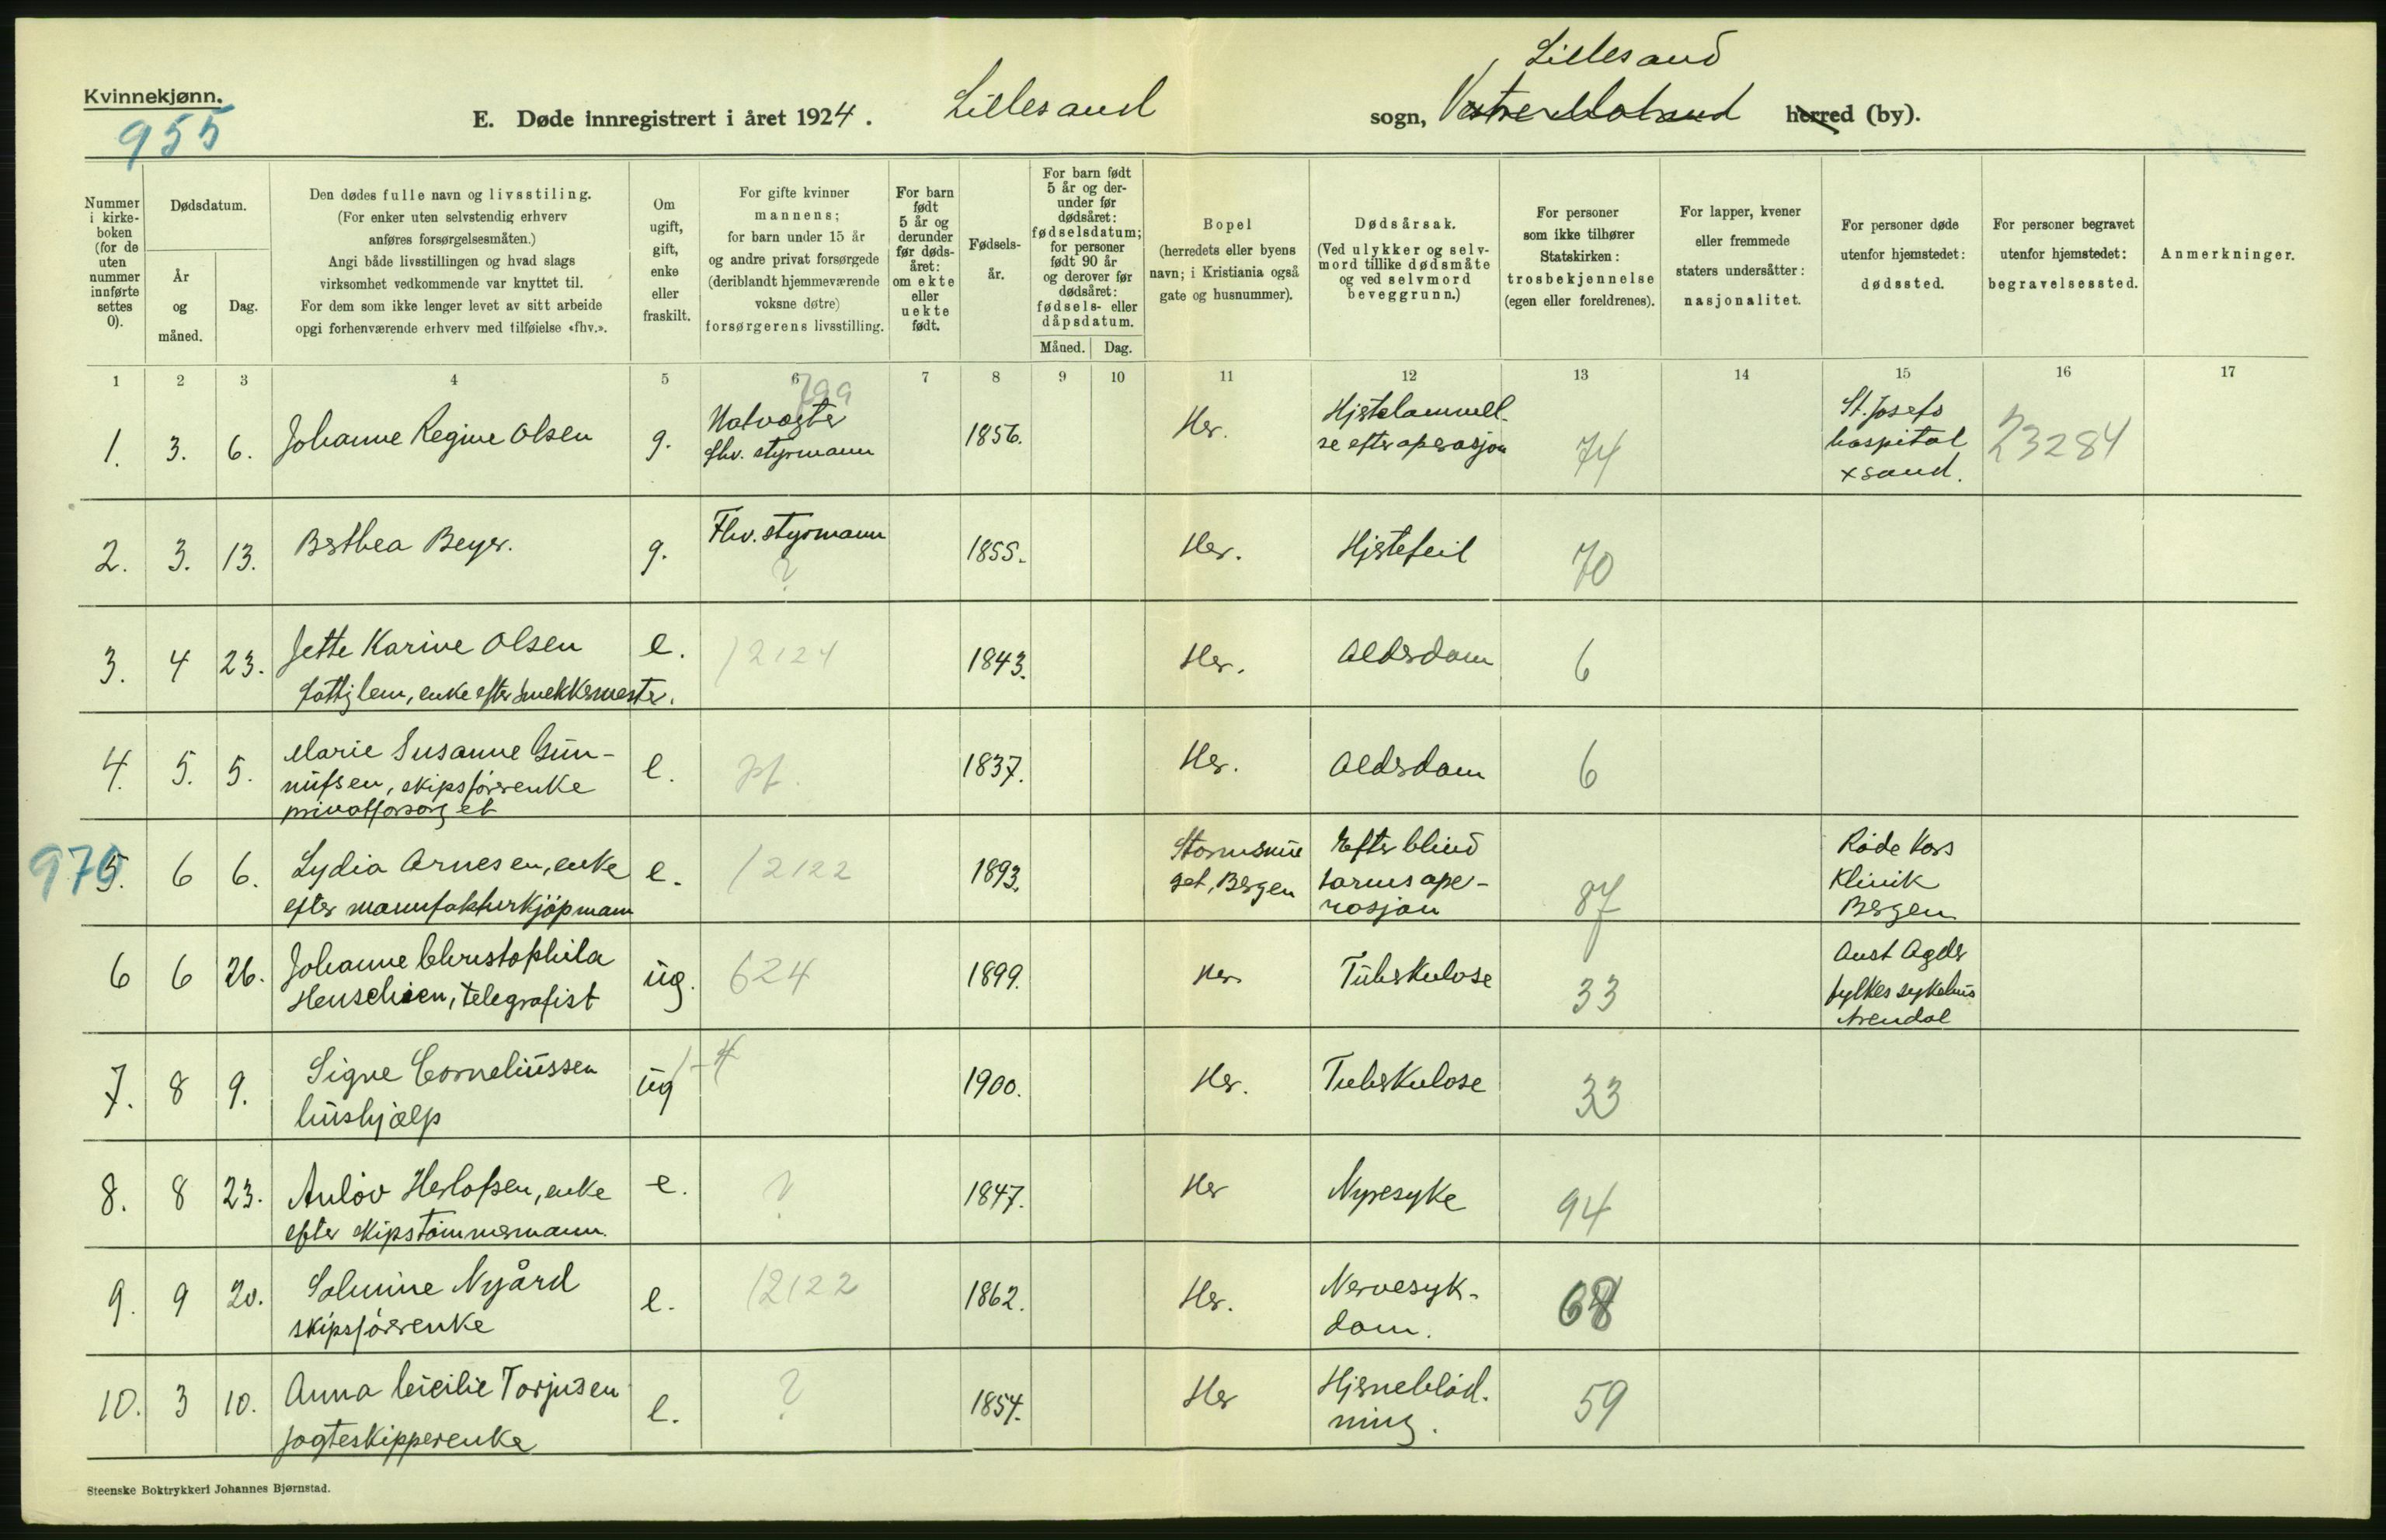 Kvinnekjønn.
955
E. Døde innregistrert i året 1924.
Lillesand
sogn,
Lillesand
Vestre Moland
herred (by).
Nummer i kirke-boken (for de uten nummer innførte settes 0).
Dødsdatum.
År og måned.
Dag.
Den dødes fulle navn og livsstiling.
(For enker uten selvstendig erhverv
anføres forsørgelsesmåten.)
Angi både livsstillingen og hvad slags
virksomhet vedkommende var knyttet til.
For dem som ikke lenger levet av sitt arbeide
opgi forhenværende erhverv med tilføielse «fhv.».
Om ugift, gift, enke eller fraskilt.
For gifte kvinner
mannens;
for barn under 15 år
og andre privat forsørgede
(deriblandt hjemmeværende
voksne døtre)
forsørgerens livsstilling.
For barn født 5 år og derunder før døds-året: om ekte eller uekte født.
Fødsels-år.
For barn født 5 år og der-under før dødsåret: fødselsdatum; for personer født 90 år og derover før dødsåret: fødsels- eller dåpsdatum.
Måned.
Dag.
Bopel
(herredets eller byens
navn; i Kristiania også
gate og husnummer).
Dødsårsak.
(Ved ulykker og selv-
mord tillike dødsmåte
og ved selvmord
beveggrunn.)
For personer
som ikke tilhører
Statskirken:
trosbekjennelse
(egen eller foreldrenes).
For lapper, kvener
eller fremmede
staters undersåtter:
nasjonalitet.
For personer døde
utenfor hjemstedet:
dødssted.
For personer begravet
utenfor hjemstedet:
begravelsessted.
Anmerkninger.
1 2 3 4 5 6 7 8 9 10 11 12 13 14 15 16 17
799
1. 3. 6. Johanne Regine Olsen g. Natvagter fhv. styrmann 1856. Her. Hjertelammel-se efter operasjon 74 St. Josefs hospital xsand. 23284
2. 3. 13. Berthea Beyer. g. Fhv. styrmann ? 1855. Her. Hjertefeil 70
3. 4 23. Jette Karine Olsen fattiglem, enke efter snekkermester. e. 12124 1843. Her. Alderdom 6
4. 5. 5. Marie Susanne Gun-nufsen, skipsførerenke privatforsørget e. pf. 1837. Her. Alderdom 6
970
5. 6 6. Lydia Arnesen, enke efter manufakturkjøpmann e. 12122 1893. get, Bergen Efter blind tarmsope-rasjon 87 Røde Kors Klinik Bergen
6 6 26. Johanne Christophila Henschien, telegrafist ug. 624 1899. Her Tuberkulose 33 Aust Agder fylkes sykehus Arendal
7. 8 9. Signe Corneliussen hushjælp ug 1900. Her. Tuberkulose 33
8. 8 23. Anlov Herlofsen, enke efter skipstømmermann. e. ? 1847. Her Nyresyke 94
9. 9 20. Salmine Nygård skipsførerenke e. 12122 1862. Her. Nervesyk-dom. 68
10. 3 10. Anna Cicilie Torjusen jagteskipperenke e. ? 1854. Her Hjerneblød-ning. 59
Steenske Boktrykkeri Johannes Bjørnstad.